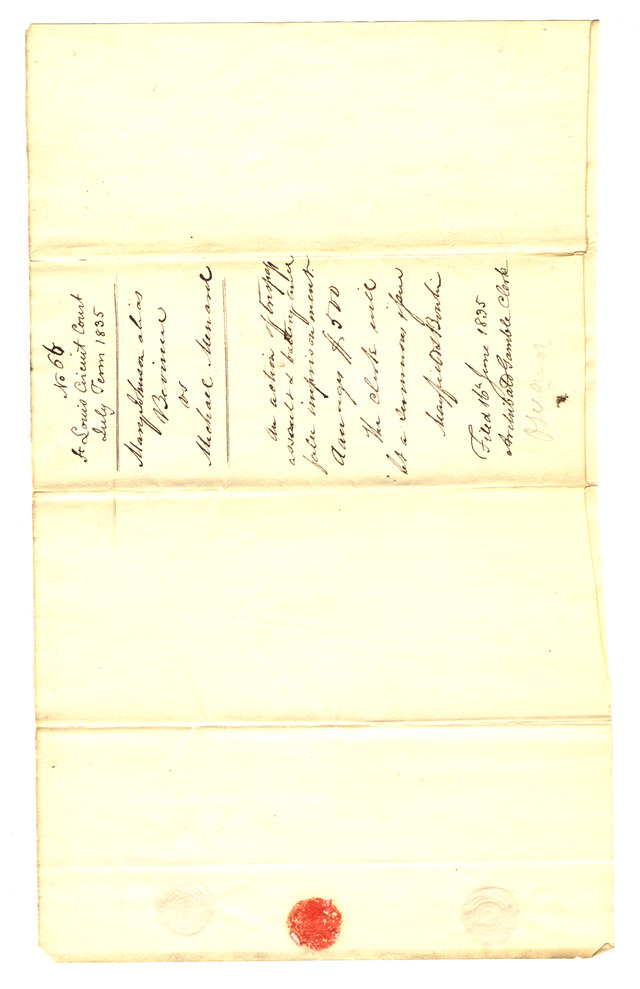 No 56
St Louis Circuit Court
July Term 1835
Mary Johnson alias
vs
Michael Menard
An action of trespass
assault & battery and
false imprisonment.
Damages $500
The clerk will
a summons
Mayfield &
Filed 16th June 1835
Archibald Gamble Clerk